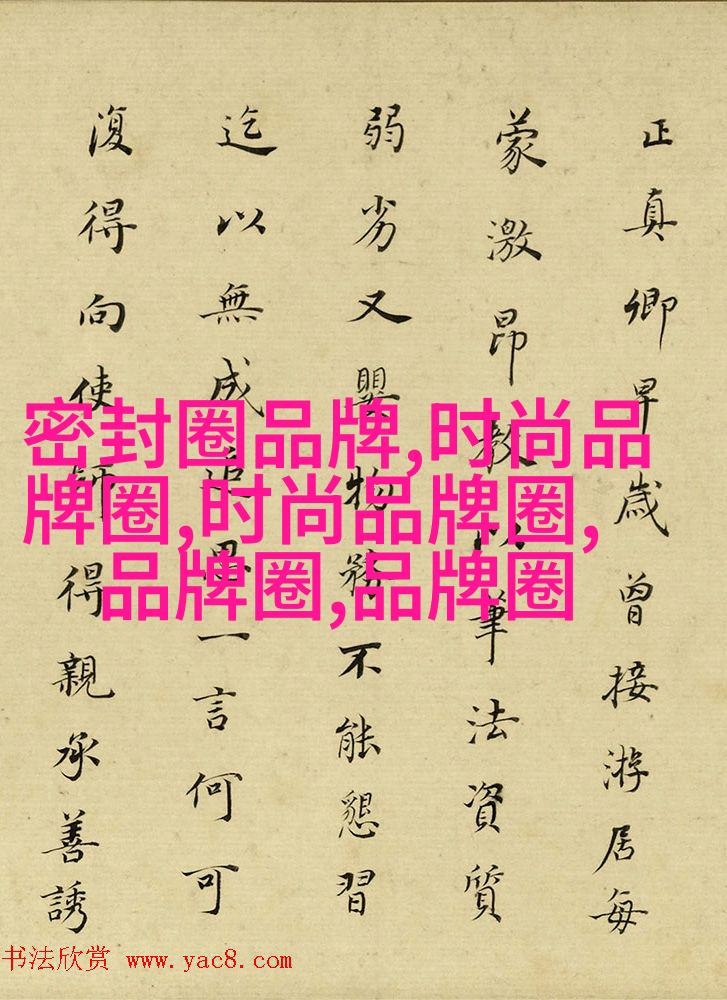 正真卿早歲曾接游居每
蒙激昂教以筆法資質
弱劣又嬰物務不能懇習
迄以無成追思一言何可
復得向使師得親承善誘
密封圈品牌,时尚品
牌圈,时尚品牌圈,
品牌圈,品牌圈
书法欣赏 www.yac8.com